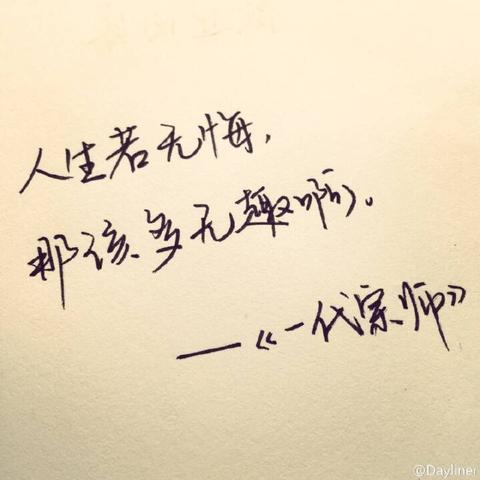 人生若无悔,
那该多无趣啊。
—《一代宗师》
@Dayliner